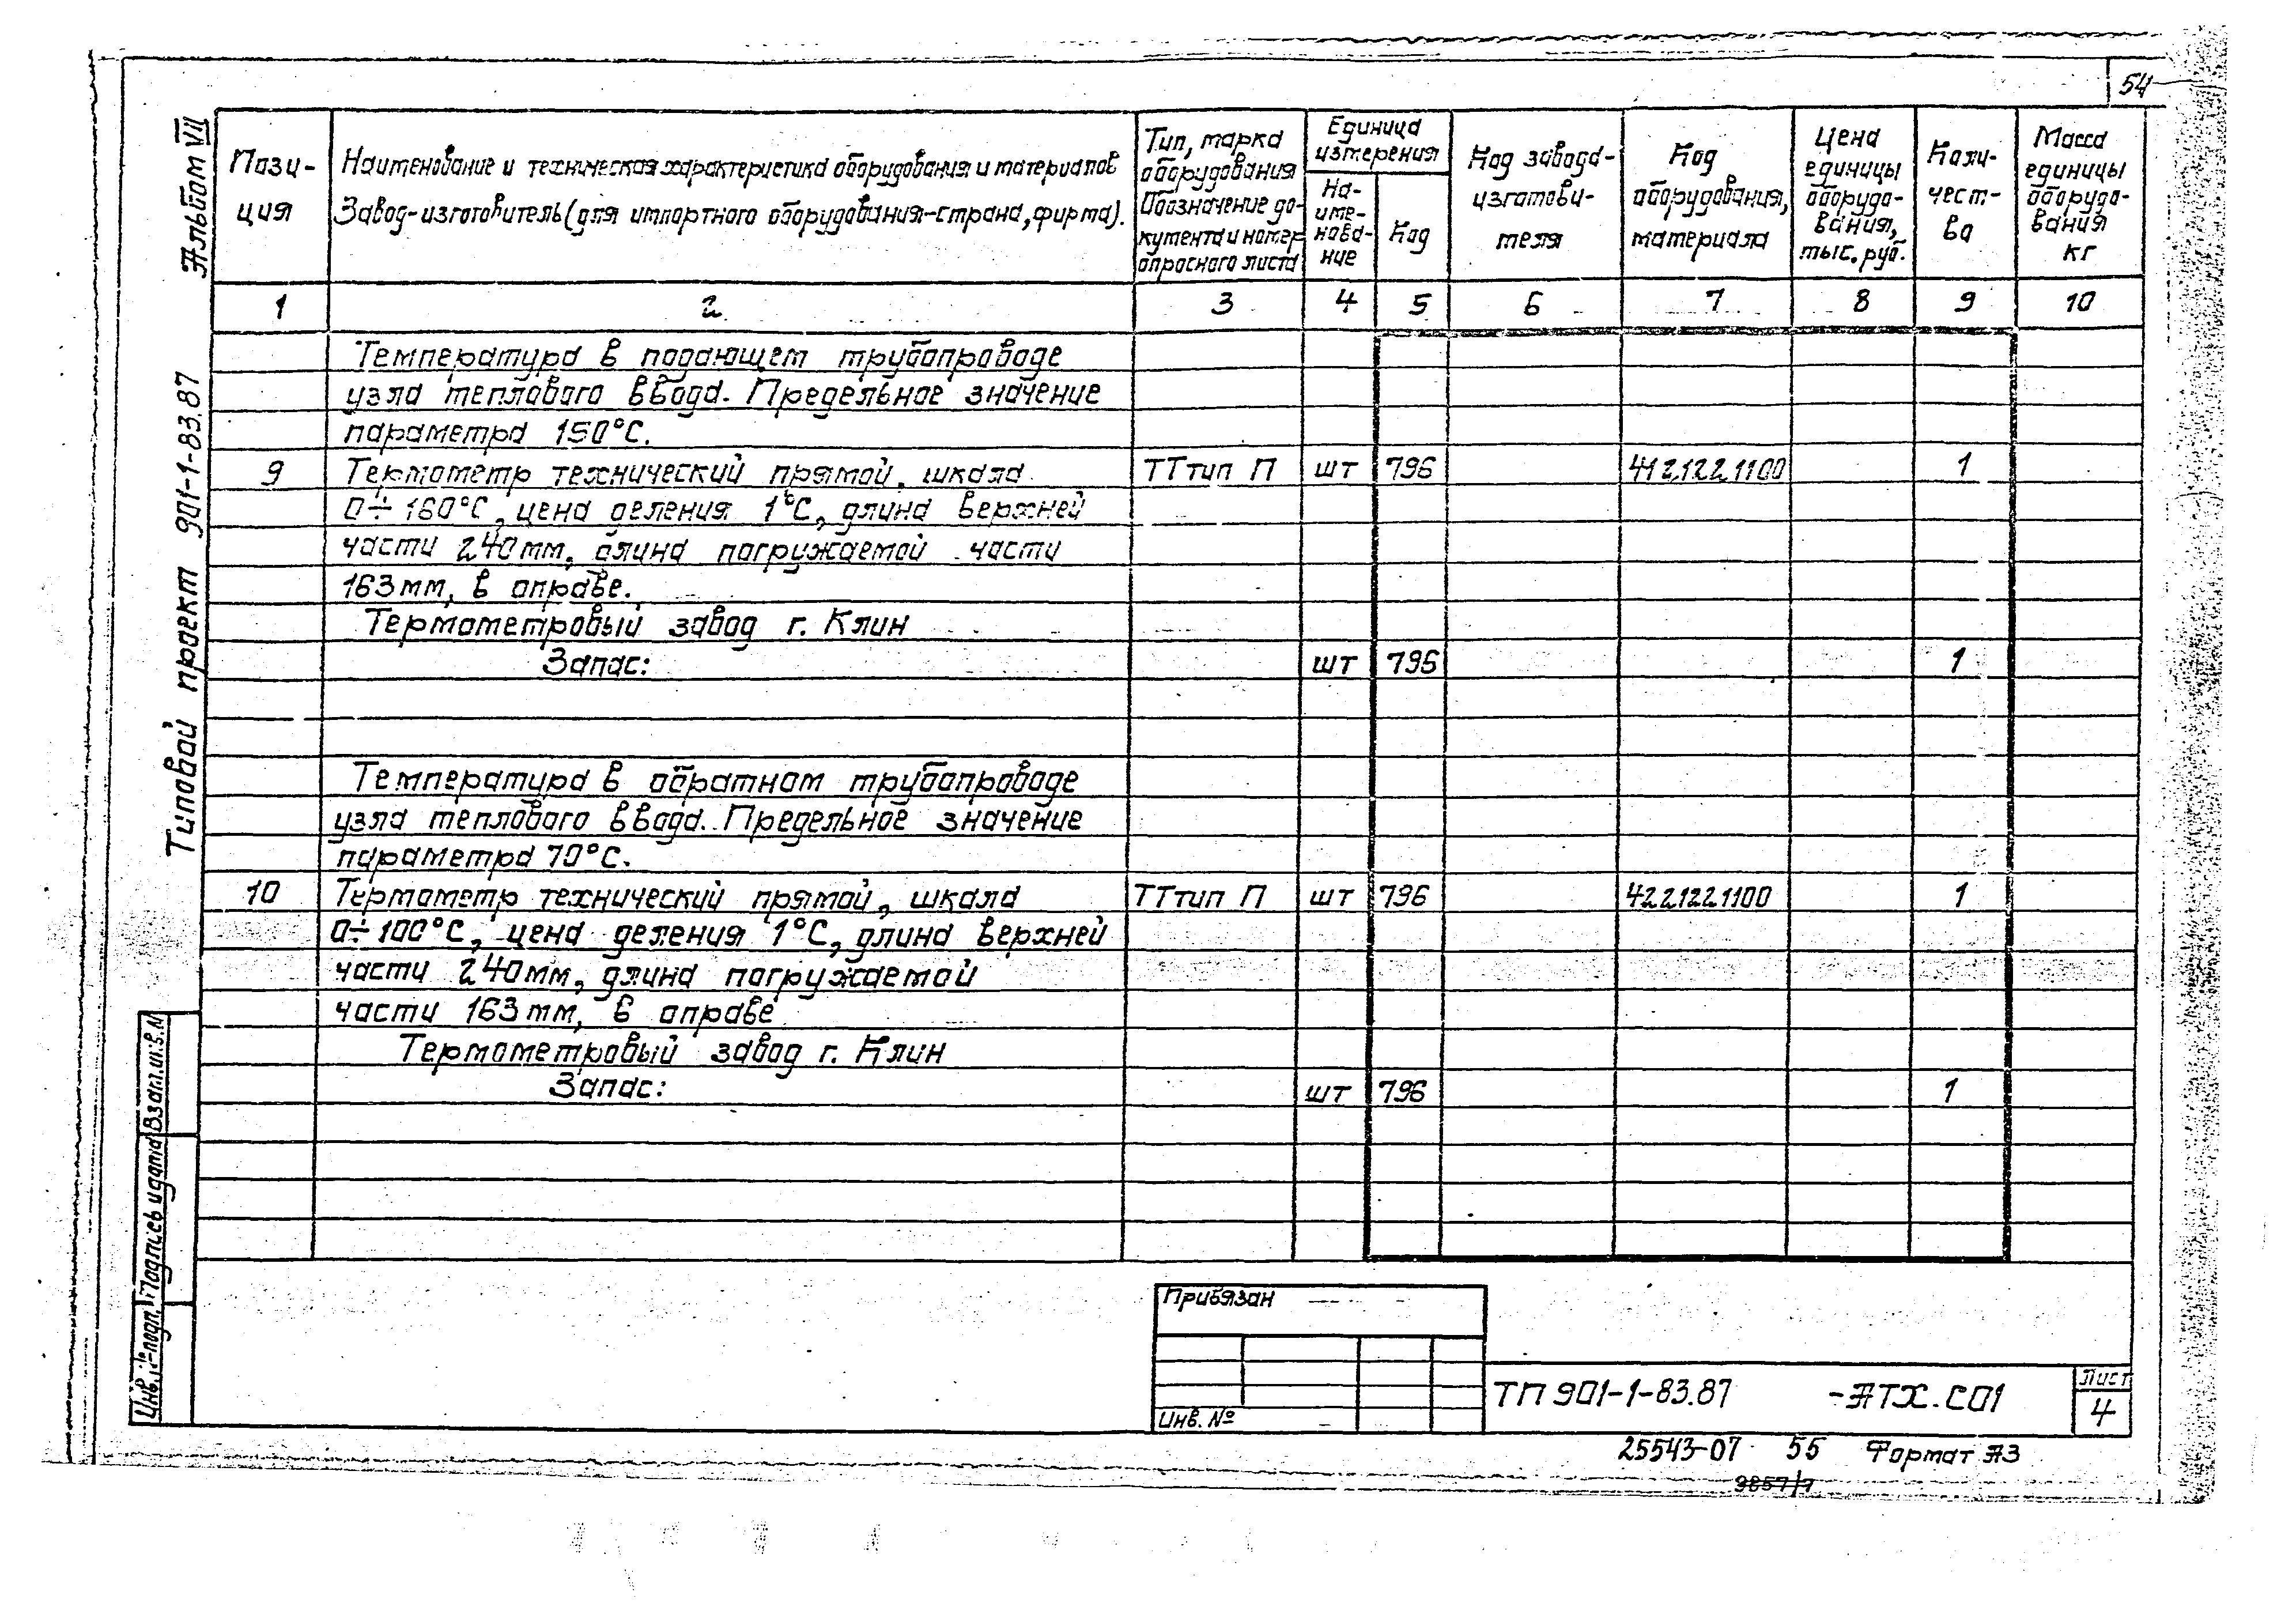 54
Альбом VII
Типовой проект 901-1-83.87
Пози-
ция
Наименование и техническая характеристика оборудования и материалов
Завод-изготовитель (для импортного оборудования-страна, фирма).
Тип, марка
оборудования
Обозначение до-
кумента и номер
опросного листа
Единица
измерения
На-
име-
нова-
ние
Код
Код завода-
изготови-
теля
Код
оборудования,
материала
Цена
единицы
оборудо-
вания,
тыс. руб.
Коли-
чест-
во
Масса
единицы
оборудо-
вания
кг
1 2 3 4 5 6 7 8 9 10
Температура в подающем трубопроводе
узла теплового ввода. Предельное значение
параметра 150°С.
9 Термометр технический прямой, шкала ТТ тип П шт 796 412.122.1100 1
0÷160°С, цена деления 1°С, длина верхней
части 240мм, длина погружаемой части
163мм, в оправе.
Термометровый завод г. Клин
Запас: шт 796 1
Температура в обратном трубопроводе
узла теплового ввода. Предельное значение
параметра 70°С.
10 Термометр технический прямой, шкала ТТ тип П шт 796 422.122.1100 1
0÷100°С, цена деления 1°С, длина верхней
части 240мм, длина погружаемой
части 163мм, в оправе
Термометровый завод г. Клин
Запас: шт 796 1
Взам.инв.№
Подпись и дата
Инв.№подл.
Привязан
Инв. №
ТП 901-1-83.87 -АТХ.С01
Лист
4
25543-07 55 Формат А3
9857/7